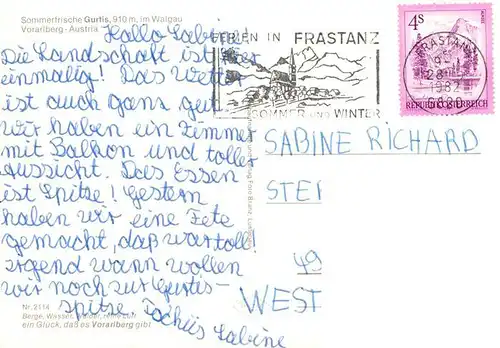 Sommerfrische Gurtis, 910 m, im Walgau
Vorarlberg - Austria
Hallo Sabine
Die Landschaft ist hier
einmalig! Das Wetter
ist auch ganz gut
wir haben ein Zimmer
mit Balkon und toller
Aussicht. Das Essen
ist Spitze! Gestern
haben wir eine Fete
gemacht, daß war toll!
irgend wann wollen
wir noch zur Gurtis-
spitze. Tschüs Sabine
Nr. 2114
Berge, Wasser, Wälder, reine Luft
ein Glück, daß es Vorarlberg gibt
FERIEN IN FRASTANZ
SOMMER UND WINTER
4S
FRASTANZ
1982
6820
REPUBLIK ÖSTERREICH
SABINE RICHARD
STE
49
WEST